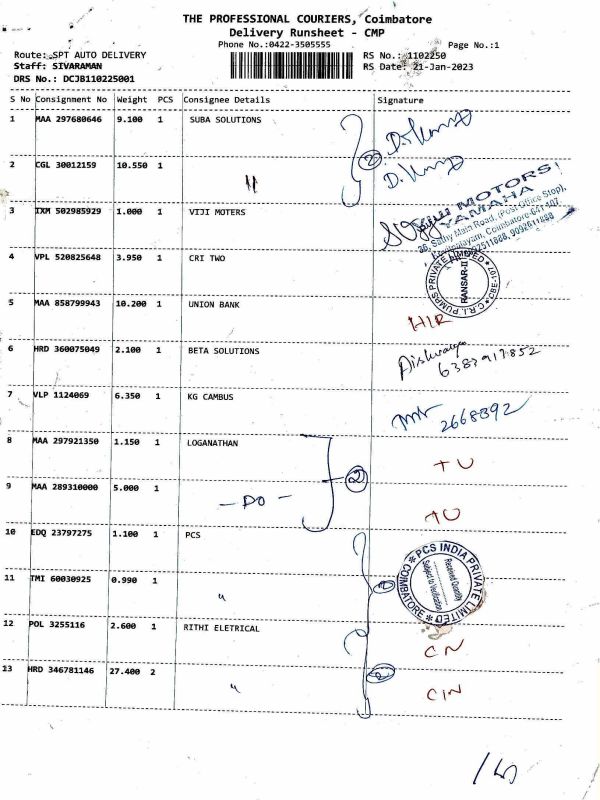 THE PROFESSIONAL COURIERS, Coimbatore
Delivery Runsheet - CMP
Phone No.:0422-3505555
Page No.:1
Route: SPT AUTO DELIVERY
RS No.: 1102250
Staff: SIVARAMAN
RS Date: 21-Jan-2023
DRS No.: DCJB110225001
S No Consignment No Weight PCS Consignee Details Signature
1 MAA 297680646 9.100 1 SUBA SOLUTIONS
2 CGL 30012159 10.550 1 〃
2
3 IXM 502985929 1.000 1 VIJI MOTERS
MOTORS
YAMAHA
Sathy Main Road, (Post Office Stop),
Coimbatore-641 107
4 VPL 520825648 3.950 1 CRI TWO
C.R.I. PUMPS PRIVATE LIMITED
RANSAR-II
5 MAA 858799943 10.200 1 UNION BANK
6 HRD 360075049 2.100 1 BETA SOLUTIONS
7 VLP 1124069 6.350 1 KG CAMBUS
2668392
8 MAA 297921350 1.150 1 LOGANATHAN
2
9 MAA 289310000 5.000 1 - DO -
10 EDQ 23797275 1.100 1 PCS
PCS INDIA PRIVATE LIMITED
COIMBATORE
Received Quantity
Subject to Verification
11 TMI 60030925 0.990 1 〃
12 POL 3255116 2.600 1 RITHI ELETRICAL CN
13 HRD 346781146 27.400 2 〃 CIN